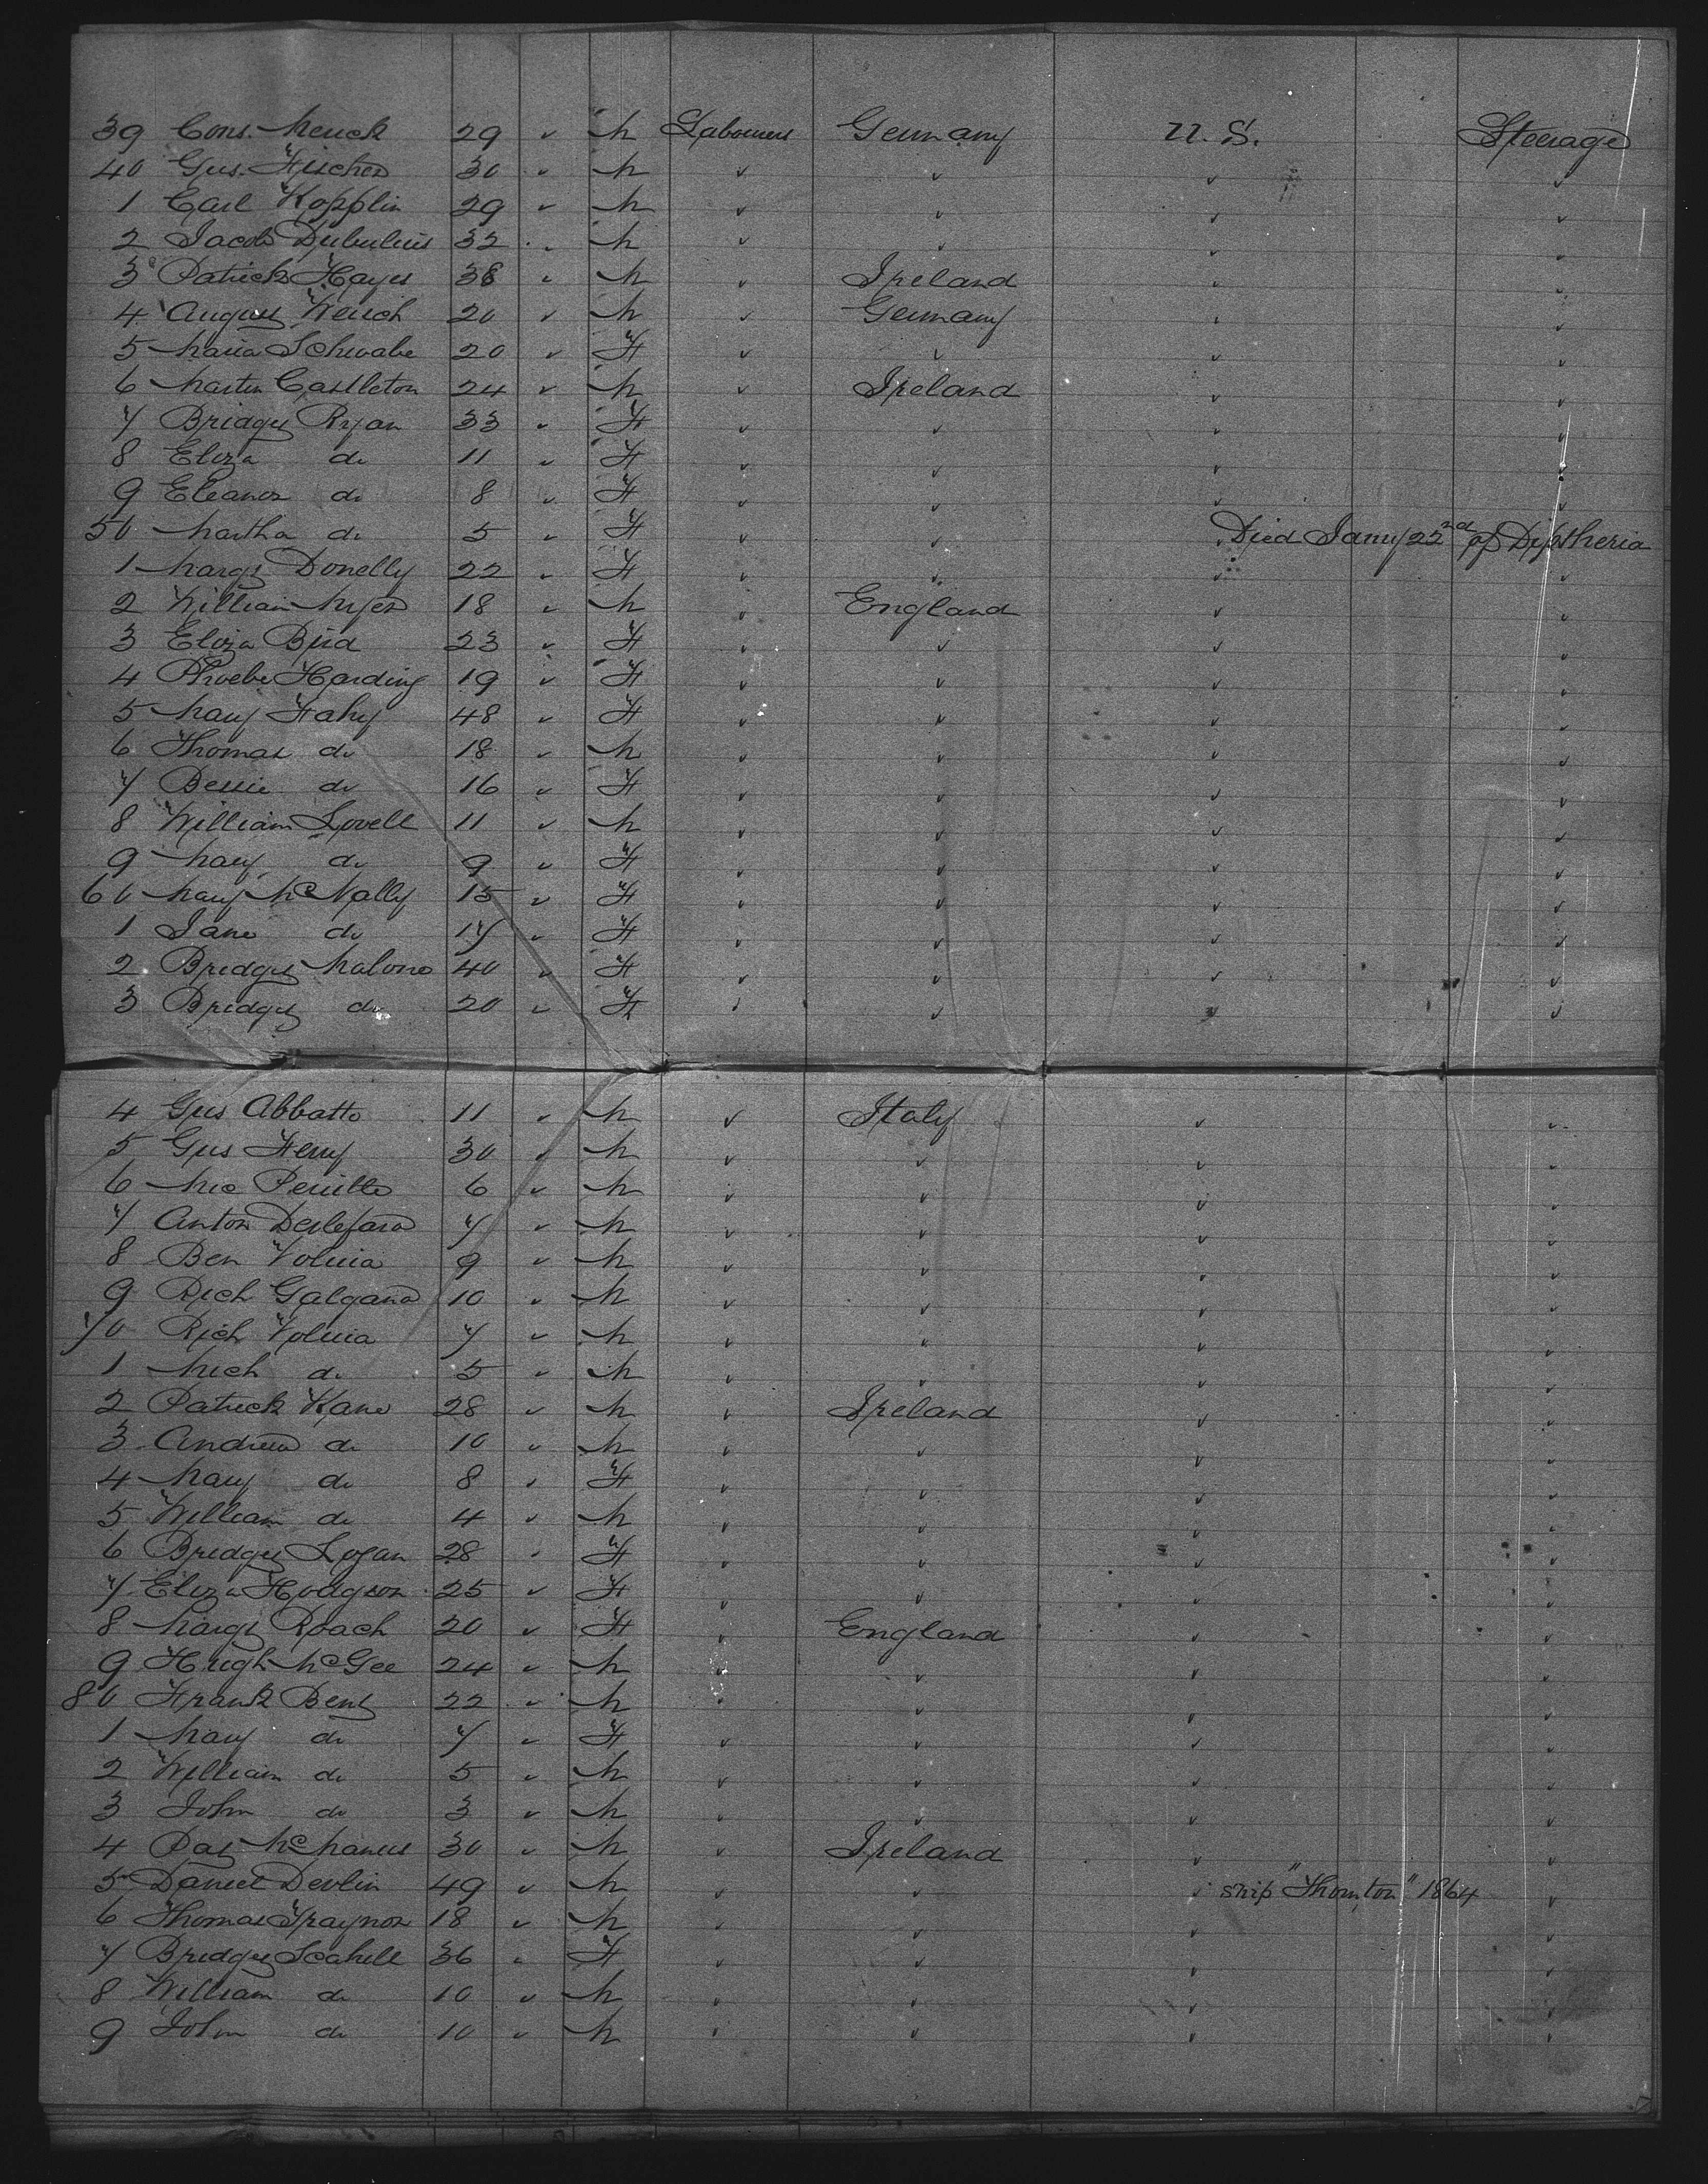 39 Cons. Menck 29 " M Labourers Germany U.S. Steerage
40 Gus. Fischer 30 " M " " " "
1 Carl Kopplin 29 " M " " " "
2 Jacob 32 " M " " " "
3 Patrick Hayes 38 " M " Ireland " "
4 August 20 " M " Germany " "
5 Maria Schwabe 20 " F " " " "
6 Martin Castleton 24 " M " Ireland " "
7 Bridget Ryan 33 " F " " " "
8 Eliza do 11 " F " " " "
9 Eleanor do 8 " F " " " "
50 Martha do 5 " F " " Died Jany 22nd of Diptheria
1 Margt Donelly 22 " F " " " "
2 William Myer 18 " M " England " "
3 Eliza Bird 23 " F " " " "
4 Phoebe Harding 19 " F " " " "
5 Mary Fahy 48 " F " " " "
6 Thomas do 18 " M " " " "
7 Bessie do 16 " F " " " "
8 William Lovell 11 " M " " " "
9 Mary do 9 " F " " " "
60 Mary McNally 15 " F " " " "
1 Jane do 17 " F " " " "
2 Bridget Malone 40 " F " " " "
3 Bridget do 20 " F " " " "
4 Gus Abbatto 11 " M " Italy " "
5 Gus Ferry 30 " M " " " "
6 Mic 6 " M " " " "
7 Anton 7 " M " " " "
8 Ben Volucia 9 " M " " " "
9 Rich Galgano 10 " M " " " "
70 Rich Volucia 7 " M " " " "
1 Mich do 5 " M " " " "
2 Patrick Kane 28 " M " Ireland " "
3 Andrew do 10 " M " " " "
4 Mary do 8 " F " " " "
5 William do 4 " M " " " "
6 Bridget Logan 28 " F " " " "
7 Eliza Hodgson 25 " F " " " "
8 Margt Roach 20 " F " England " "
9 Hugh McGee 24 " M " " " "
80 Frank Bent 22 " M " " " "
1 Mary do 7 " F " " " "
2 William do 5 " M " " " "
3 John do 3 " M " " " "
4 Pat McManus 30 " M " Ireland " "
5 Daniel Devlin 49 " M " " " ship "Thornton" 1864 "
6 Thomas Traynor 18 " M " " " "
7 Bridget Scahill 36 " F " " " "
8 William do 10 " M " " " "
9 John do 10 " M " " " "